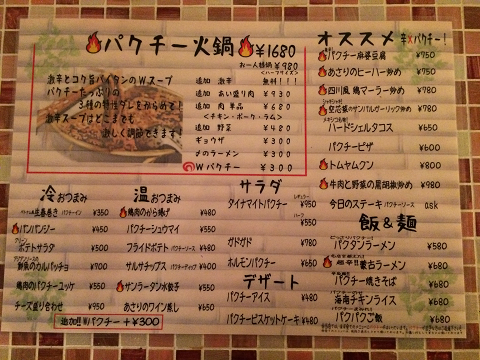 パクチー火鍋 ¥1680
お一人様鍋 ¥980
<ハーフサイズ>
激辛とコク旨パイタンのWスープ
パクチーたっぷりの
3種の特性ダレをからめて!
激辛スープはどこまでも
激しく調節できます!
追加 激辛 無料!!!
追加 あい盛り肉 ¥930
追加 肉 単品 ¥680
<チキン・ポーク・ラム>
追加 野菜 ¥480
ギョウザ ¥300
〆のラーメン ¥300
Wパクチー ¥300
オススメ 辛×パクチー!
パクチー麻婆豆腐 ¥750
あさりのピーハー炒め ¥750
四川風 鶏マーラー炒め ¥780
空芯菜のサンバルガーリック炒め ¥780
ハードシェルタコス ¥650
パクチーピザ ¥600
トムヤムクン ¥800
牛肉と野菜の黒胡椒炒め ¥980
今日のステーキ パクチーソース ask
冷おつまみ
生春巻き パクチーイン ¥350
バンバンジー ¥450
ポテトサラダ ¥500
鮮魚のカルパッチョ ¥700
鶏肉のパクチーユッケ ¥550
チーズ盛り合わせ ¥950
追加!! Wパクチー +¥300
温おつまみ
鶏肉のから揚げ ¥480
パクチーシュウマイ ¥550
フライドポテト パクチーソース ¥480
サルサチップス ¥400
サンラータン水餃子 ¥550
あさりのワイン蒸し ¥650
サラダ
ダイナマイトパクチー
レギュラー ¥950
ハーフ ¥550
ガドガド ¥780
ホルモンパクチー ¥650
デザート
パクチーアイス ¥480
パクチービスケットケーキ ¥480
飯&麺
パクタンラーメン ¥680
蒙古ラーメン ¥680
パクチー焼きそば ¥680
海南チキンライス ¥680
パクパクご飯 ¥680